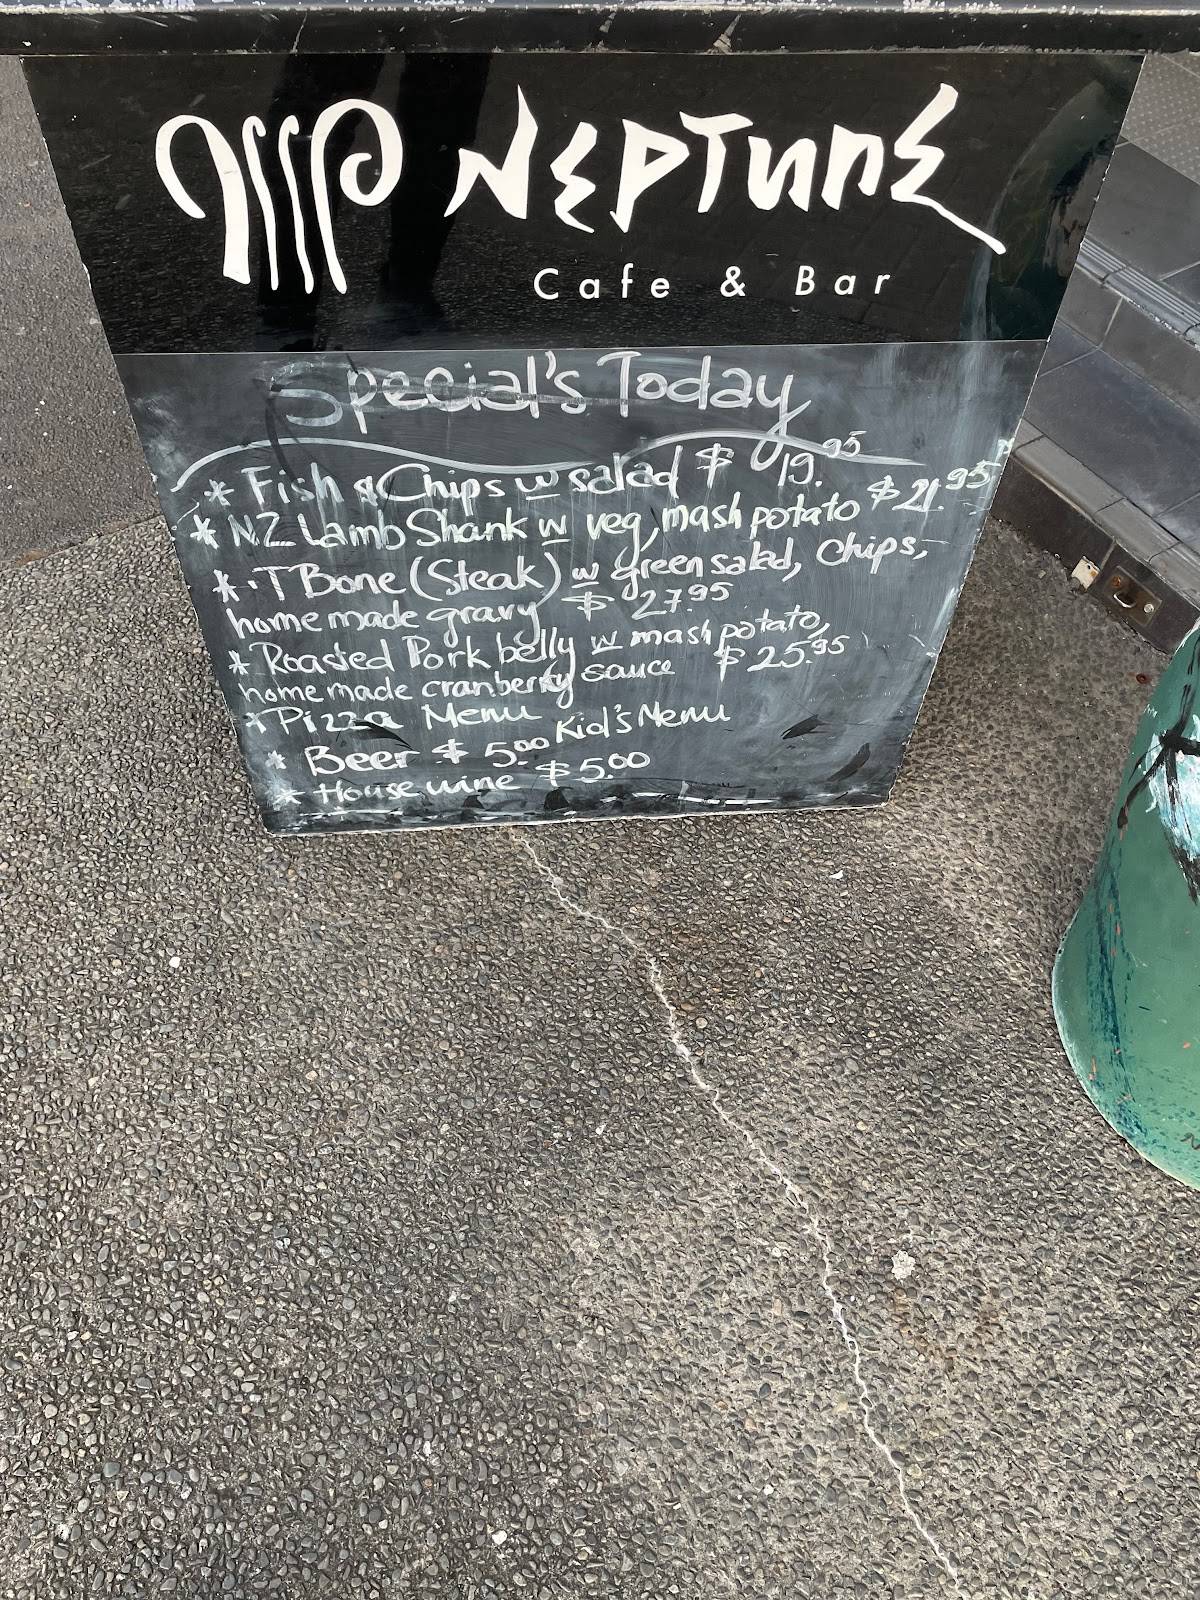 NEPTUNE
Cafe & Bar
Special's Today
* Fish & Chips w salad $ 19.95
* NZ Lamb Shank w veg, mash potato $21.95
* T Bone (Steak) w green salad, chips,
home made gravy $ 27.95
* Roasted Pork belly w mash potato,
home made cranberry sauce $25.95
* Pizza Menu Kid's Menu
* Beer $ 5.00
* House wine $5.00